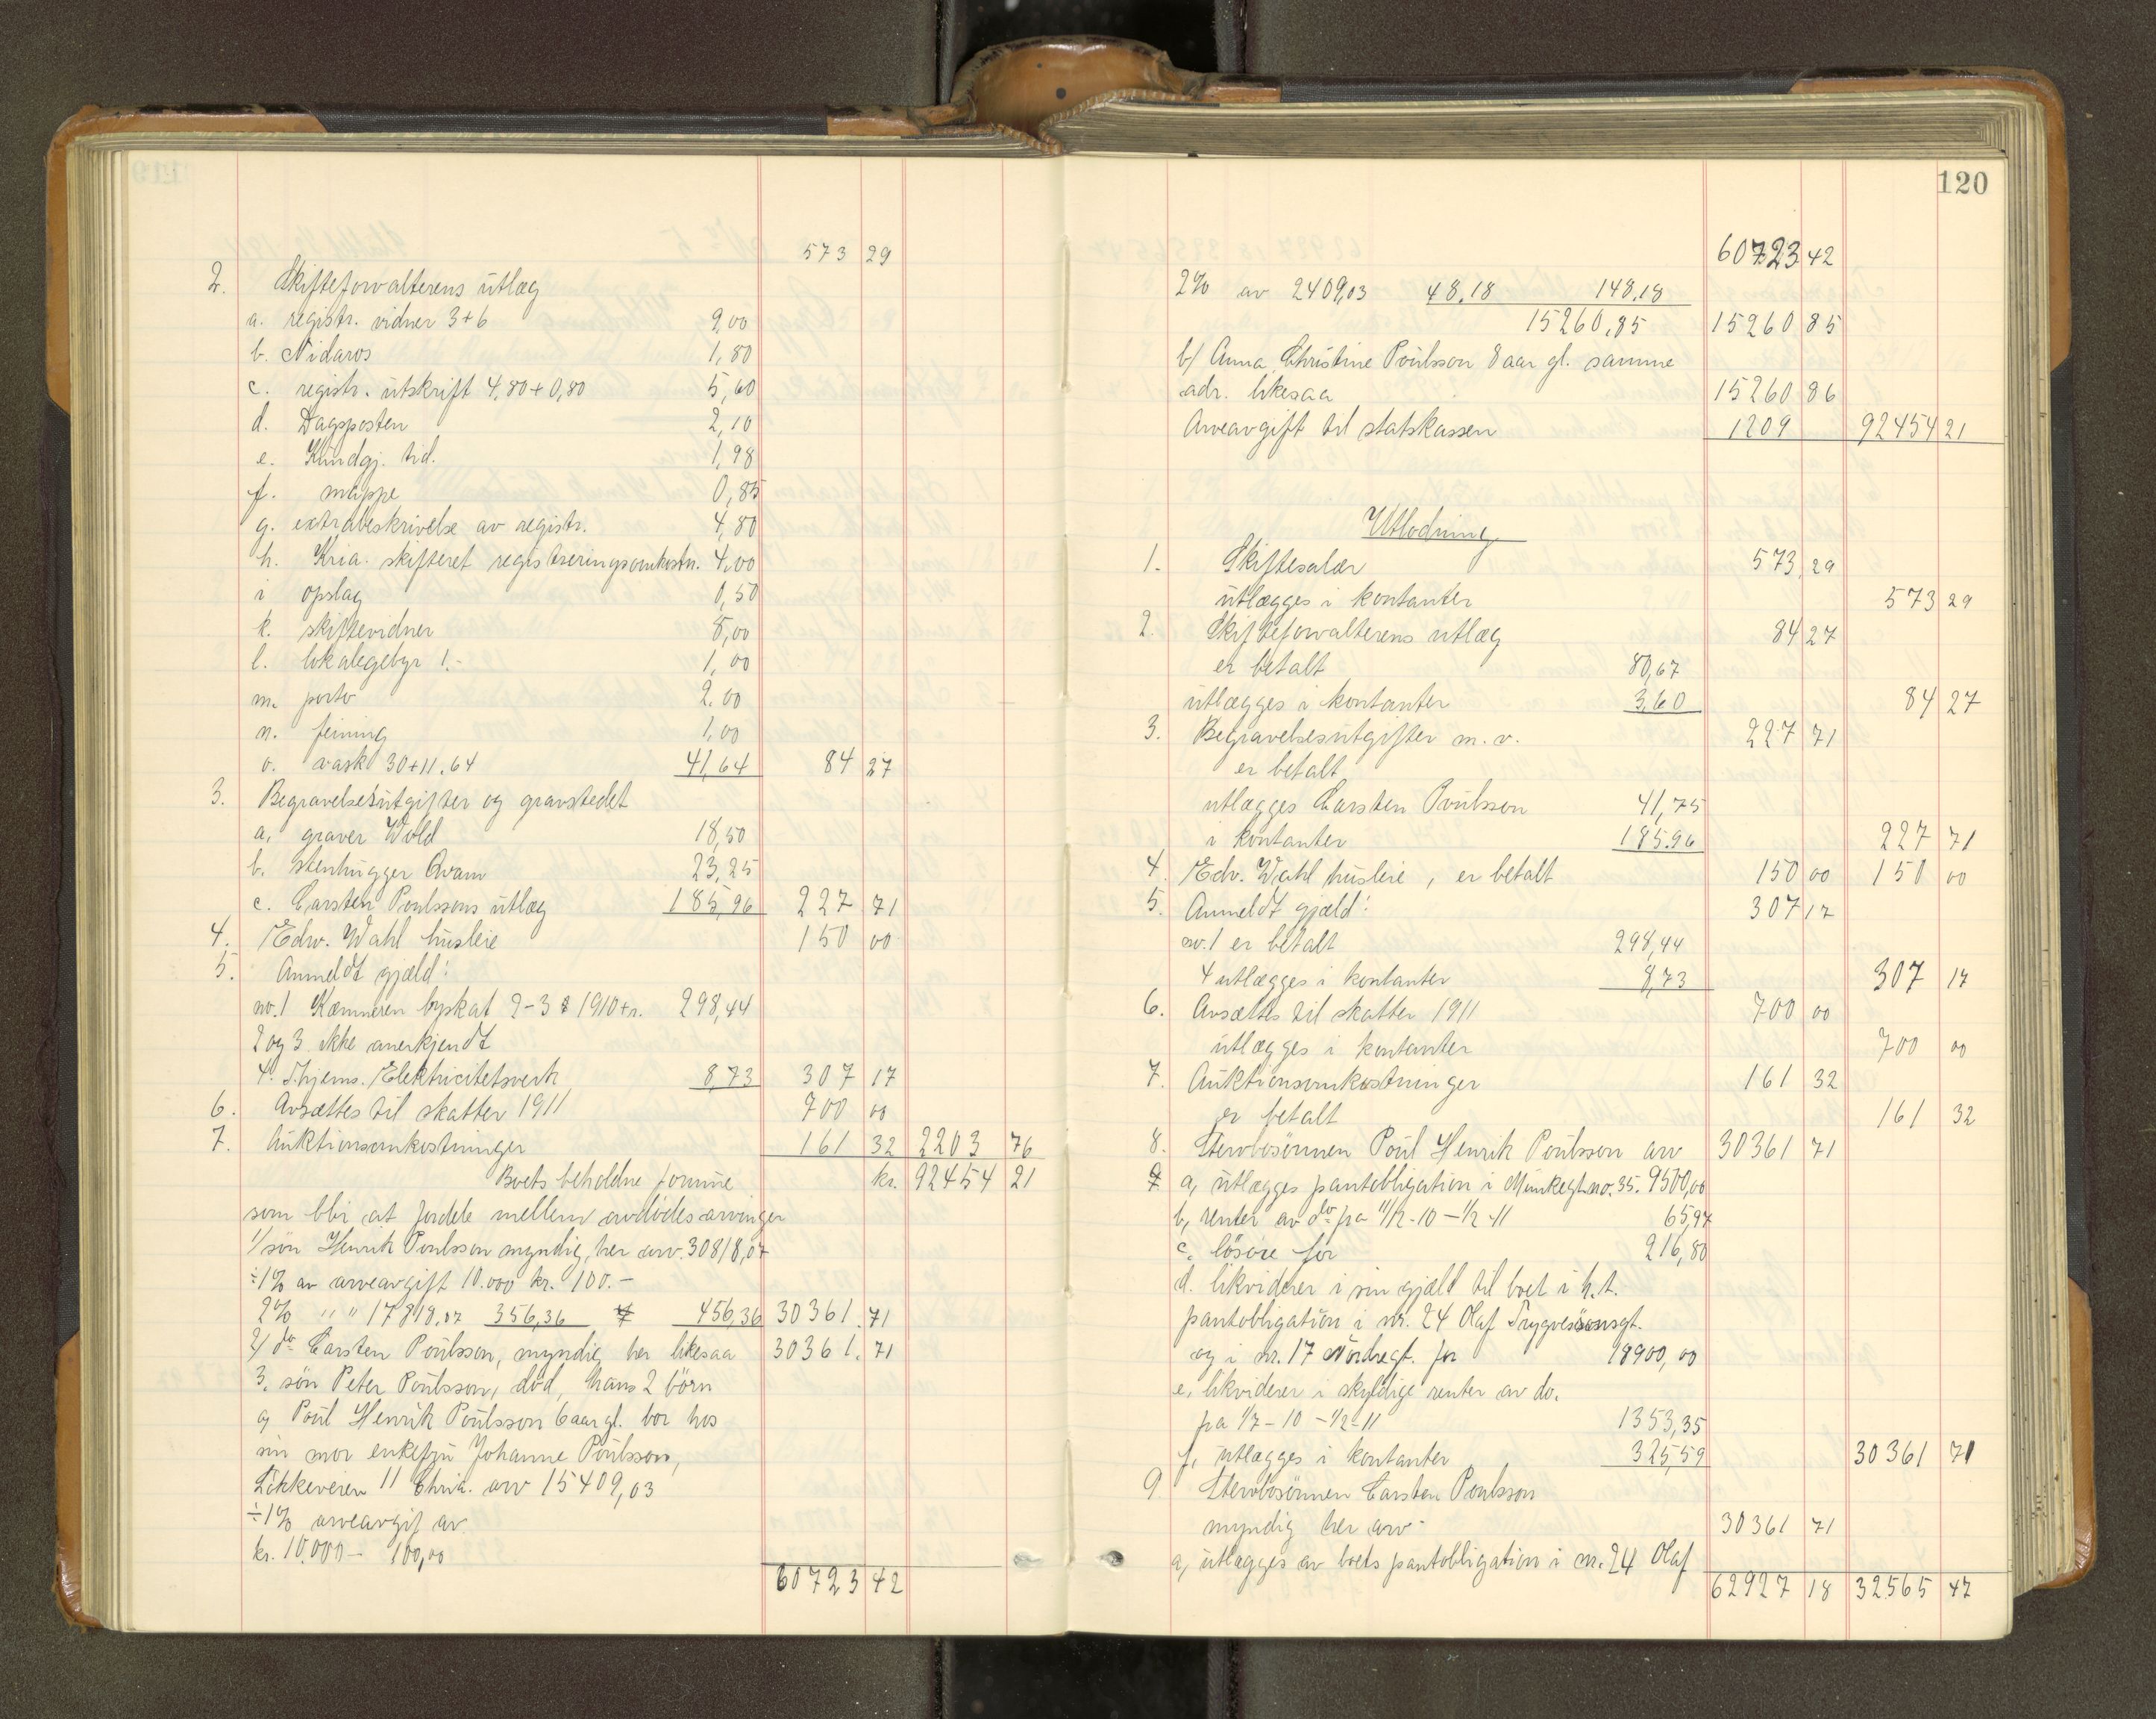 573 29
2. Skifteforvalterens utlæg
a. registr. vidner 3+6 9,00
b. Nidaros 1,80
c. registr. utskrift 4,80+0,80 5,60
d. Dagsposten 2,10
e. Kundgj. tid. 1,98
f. mappe 0,85
g. extrabeskrivelse av registr. 4,80
h. Kria. skifteret registreringsomkostn. 4,00
i opslag 0,50
k. skiftevidner 8,00
l. lokalegebyr 1.- 1,00
m. porto 2,00
n. feining 1,00
o. vask 30+11.64 41,64 84 27
3. Begravelsesutgifter og gravstedet
a, graver Wold 18,50
b. stenhugger Qvam 23,25
c. Carsten Poulssons utlæg 185,96 227 71
4. Edv. Wahl husleie 150 00
5. Anmeldt gjæld:
no. 1 Kæmneren byskat 2-3 1910+r. 298,44
2 og 3 ikke anerkjendt
4. Thjems. Elektricitetsverk 8,73 307 17
6. Avsættes til skatter 1911 700 00
7. Auktionsomkostninger 161 32 2203 76
Boets beholdne formue kr. 92454 21
som blir at fordele mellem avdødes arvinger
1/ søn Henrik Poulsson myndig, her arv. 30818,07
÷1% av arveavgift 10.000 kr. 100.-
2% " " 17818,07 356,36 456,36 30361. 71
2/ do Carsten Poulsson, myndig her likesaa 30361. 71
3. søn Peter Poulsson, død, hans 2 børn
a/ Poul Henrik Poulsson 6 aar gl. bor hos
sin mor enkefru Johanne Poulsson,
Løkkeveien 11 Chria. arv 15409,03
÷1% arveavgif av
kr. 10.000- 100,00
60723 42
120
60723 42
2% av 2409,03 48,18 148,18
15260,85 15260 85
b/ Anna Christine Poulsson 8 aar gl. samme
adr. likesaa 15260 86
Arveavgift til statskassen 1209 92454 21
Utlodning
1. Skiftesalær 573,29
utlægges i kontanter 573 29
2. Skifteforvalterens utlæg 84 27
er betalt 80,67
utlægges i kontanter 3,60 84 27
3. Begravelsesutgifter m.v. 227 71
er betalt
utlægges Carsten Poulsson 41,75
i kontanter 185.96 227 71
4. Edv. Wahl husleie, er betalt 150 00 150 00
5. Anmeldt gjæld: 307 17
no. 1 er betalt 298,44
4 utlægges i kontanter 8,73 307 17
6. Avsættes til skatter 1911 700 00
utlægges i kontanter 700 00
7. Auktionsomkostninger 161 32
er betalt 161 32
8. Stervbosønnen Poul Henrik Poulsson arv 30361 71
a, utlægges pantobligation i Munkegt. no. 35. 9500,00
b, renter av do fra 11/12-10 - 1/2-11 65,97
c. løsøre for 216,80
d. likviderer i sin gjæld til boet i h.t.
pantobligation i nr. 24 Olaf Trygvesønsgt.
og i nr. 17 Nordregt. for 18900,00
e, likviderer i skyldige renter av do.
fra 1/7-10 - 1/2-11 1353,35
f, utlægges i kontanter 325,59 30361 71
9. Stervbosønnen Carsten Poulsson
myndig her arv 30361 71
a, utlægges av boets pantobligation i nr. 24 Olaf
62927 18 32565 47